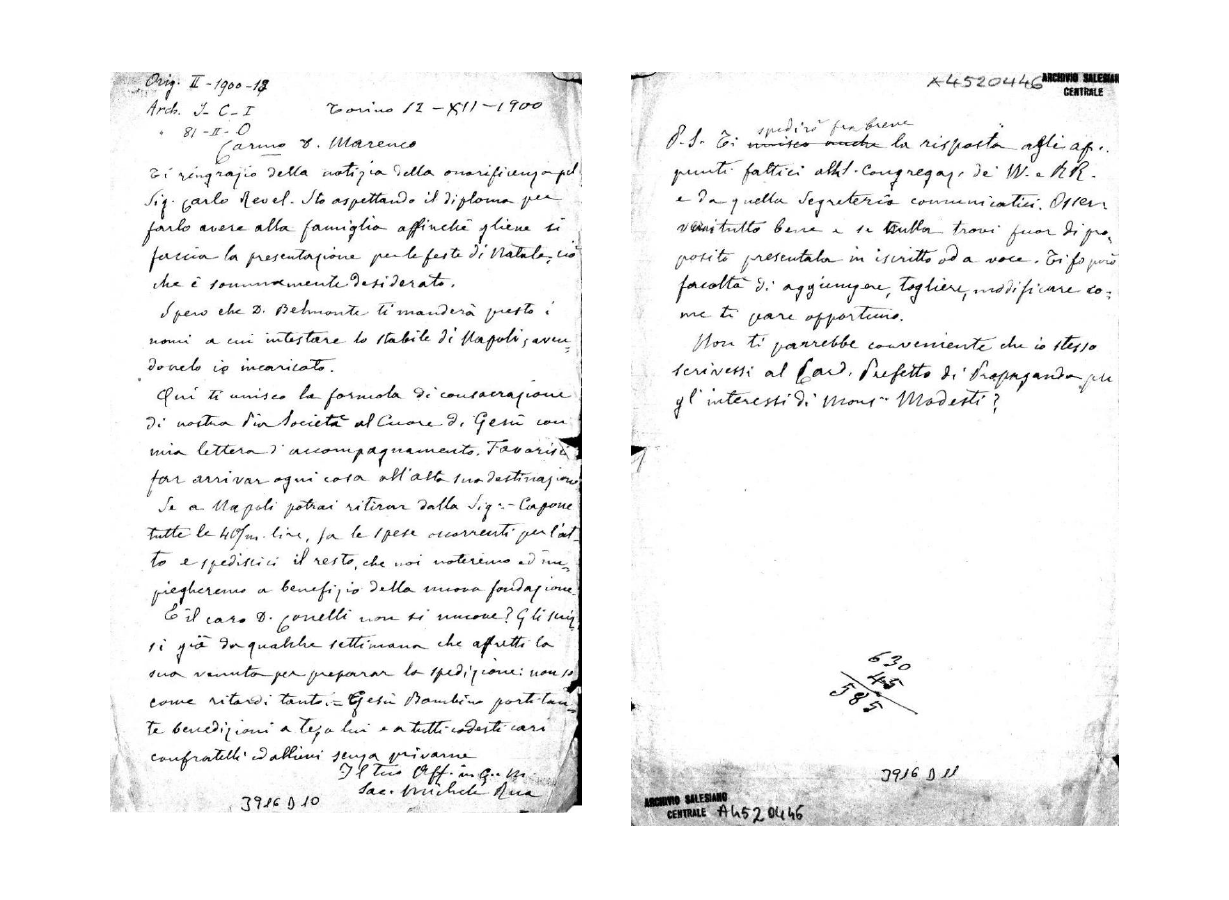 Orig. II - 1900 - 12
Arch. I - C - I
" 81 - II - O
Torino 12 - XII - 1900
Carmo D. Marenco
Ti ringrazio della notizia della onorificenza pel
Sig. Carlo Revel. Sto aspettando il diploma per
farlo avere alla famiglia affinchè gliene si
faccia la presentazione per le feste di Natale, ciò
che è sommamente desiderato.
Spero che D. Belmonte ti manderà presto i
nomi a cui intestare lo stabile di Napoli, aven-
donelo io incaricato.
Qui ti unisco la formola di consacrazione
di nostra Pia Società al Cuore di Gesù con
mia lettera d'accompagnamento. Favorisci
far arrivar ogni cosa all'alta sua destinazione
Se a Napoli potrai ritirar dalla Sig.- Capone
tutte le 40/m. lire, fa le spese occorrenti per l'at-
to e spediscici il resto, che noi noteremo ed im-
piegheremo a benefizio della nuova fondazione.
E il caro D. Conelli non si muove? Gli scris-
si già da qualche settimana che affretti la
sua venuta per preparar la spedizione: non so
come ritardi tanto.= Gesù Bambino porti tan-
te benedizioni a te, a lui e a tutti codesti cari
confratelli ed allievi senza privarne
Il tuo Aff. in G. e M.
Sac. Michele Rua
3916 D 10
A4520446
ARCHIVIO SALESIAN
CENTRALE
spedirò fra breve
P.S. Ti unisco anche la risposta agli ap-
punti fattici alla S. Congregaz. de' VV. e RR.
e da quella Segreteria comunicatici. Osser
va tutto bene e se nulla trovi fuor di pro-
posito presentala in iscritto od a voce. Ti fo però
facoltà di aggiungere, togliere, modificare co-
me ti pare opportuno.
Non ti parrebbe conveniente che io stesso
scrivessi al Card. Prefetto di Propaganda per
gl'interessi di Mons. Modesti?
630
45
585
3916 D 11
ARCHIVIO SALESIANO
CENTRALE A4520446